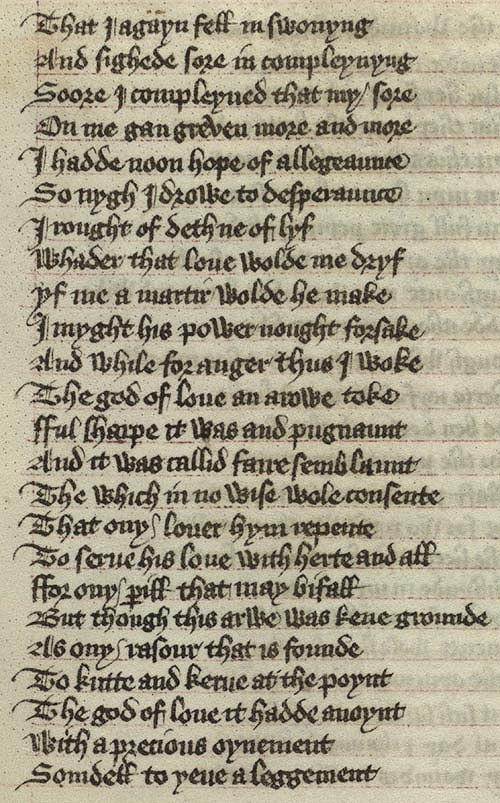 That I agayn fell in swonyng
And sighede sore in compleynyng
Soore I compleyned that my / sore
On me gan greven more and more
I hadde noon hope of allegeaunce
So nygh I drowe to desperaunce
I rought of deth ne of lyf
Whader that loue wolde me dryf
yf me a martir wolde he make
I myght his power nought forsake
And while for anger thus I woke
The god of loue an arowe toke
fful sharpe it was and pugnaunt
And it was callid faire semblaunt
The which in no wise wole consente
That ony / louer hym repente
To serue his loue with herte and all
ffor ony / pill that may bifall
But though this arwe was kene grounde
As ony / rasour that is founde
To kutte and kerue at the poynt
The god of loue it hadde anoynt
With a precious oynement
Somdell to yeue aleggement